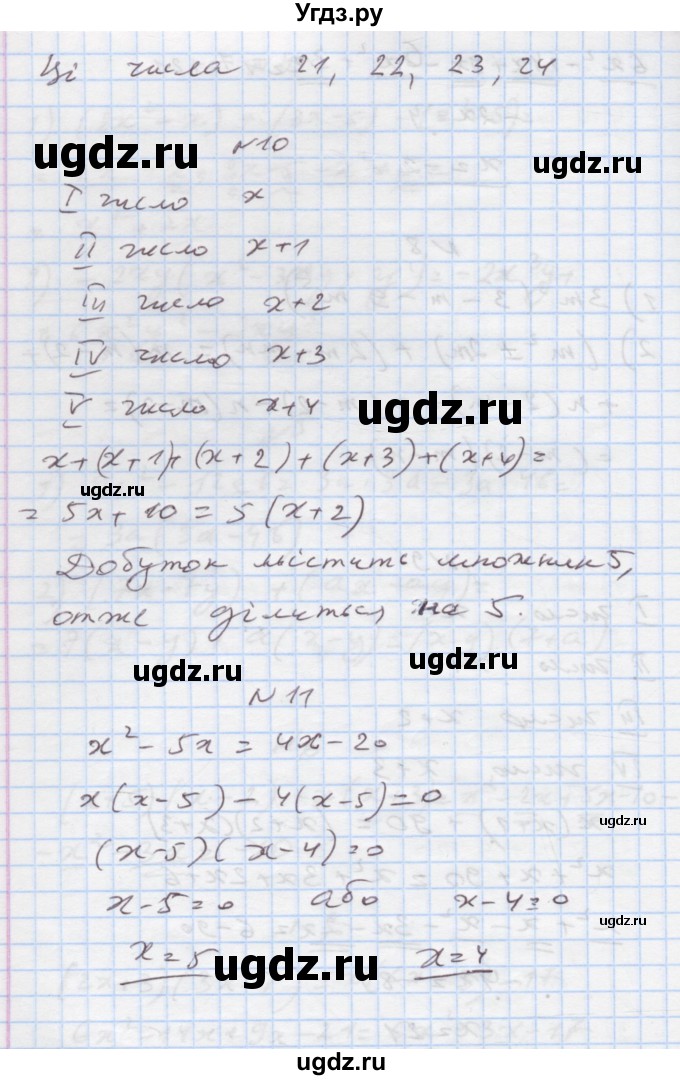 Угдз.ру
Ці числа 21, 22, 23, 24
ugdz.ru
ugdz.ru
N10
I число x
II число x+1
III число x+2
IV число x+3
V число x+4
ugdz.ru
x+(x+1)+(x+2)+(x+3)+(x+4)=
ugdz.ru
= 5x+10 = 5(x+2)
Добуток містить множник 5,
отже ділиться на 5.
ugdz.ru
ugdz.ru
N11
x² - 5x = 4x - 20
x(x-5) - 4(x-5)=0
ugdz.ru
(x-5)(x-4)=0
x-5=0 або x-4=0
ugdz.ru
x=5 x=4
ugdz.ru
ugdz.ru